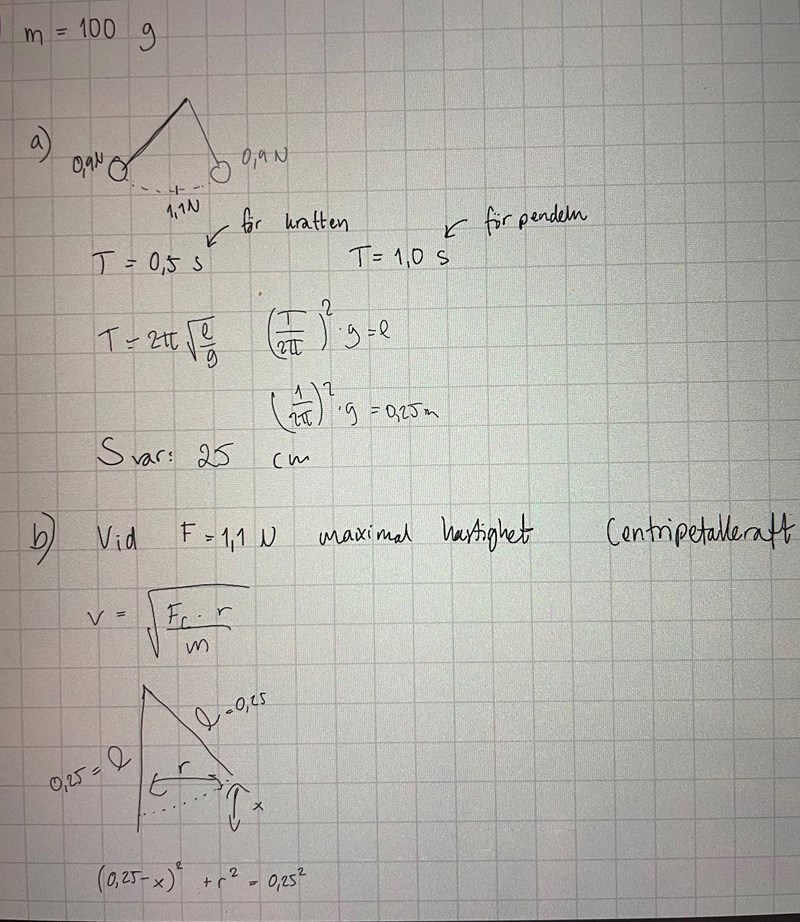 m = 100 g
a)
0,9N
0,9 N
1,1N
för kraften
för pendeln
T = 0,5 s
T = 1,0 s
T = 2π √(l/g)
(T/2π)² · g = l
(1/2π)² · g = 0,25 m
Svar: 25 cm
b) Vid F = 1,1 N maximal hastighet Centripetalkraft
v = √(Fc · r / m)
l = 0,25
0,25 = l
r
x
(0,25-x)² + r² = 0,25²